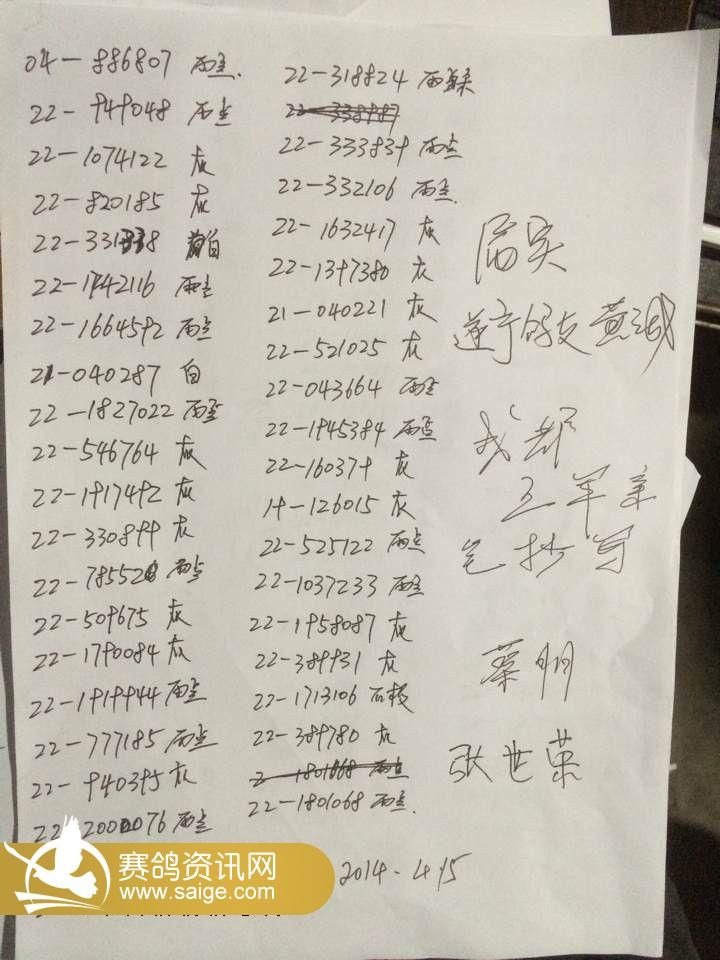 04-886807 雨点.
22-949048 雨点
22-1074122 灰
22-820185 灰
22-331338 白
22-1742116 雨点
22-1664592 雨点
21-040287 白
22-1827022 雨点
22-546764 灰
22-1917492 灰
22-330899 灰
22-785520 雨点
22-509675 灰
22-1790084 灰
22-1919944 雨点
22-777185 雨点
22-940395 灰
22-2000076 雨点
22-318824 雨
22-338987
22-333839 雨点
22-332106 雨点.
22-1632417 灰
22-1397380 灰
21-040221 灰
22-521025 灰
22-043664 雨点
22-1945384 雨点
22-160379 灰
19-126015 灰
22-525122 雨点
22-1037233 雨点
22-1958087 灰
22-389931 灰
22-1713106 石板
22-389780 灰
2-1801168 雨点
22-1801068 雨点.
属实
遂宁鸽友黄
成都
王军亲
笔抄写
蔡明
张世荣
2014-4/15
赛鸽资讯网
www.saige.com